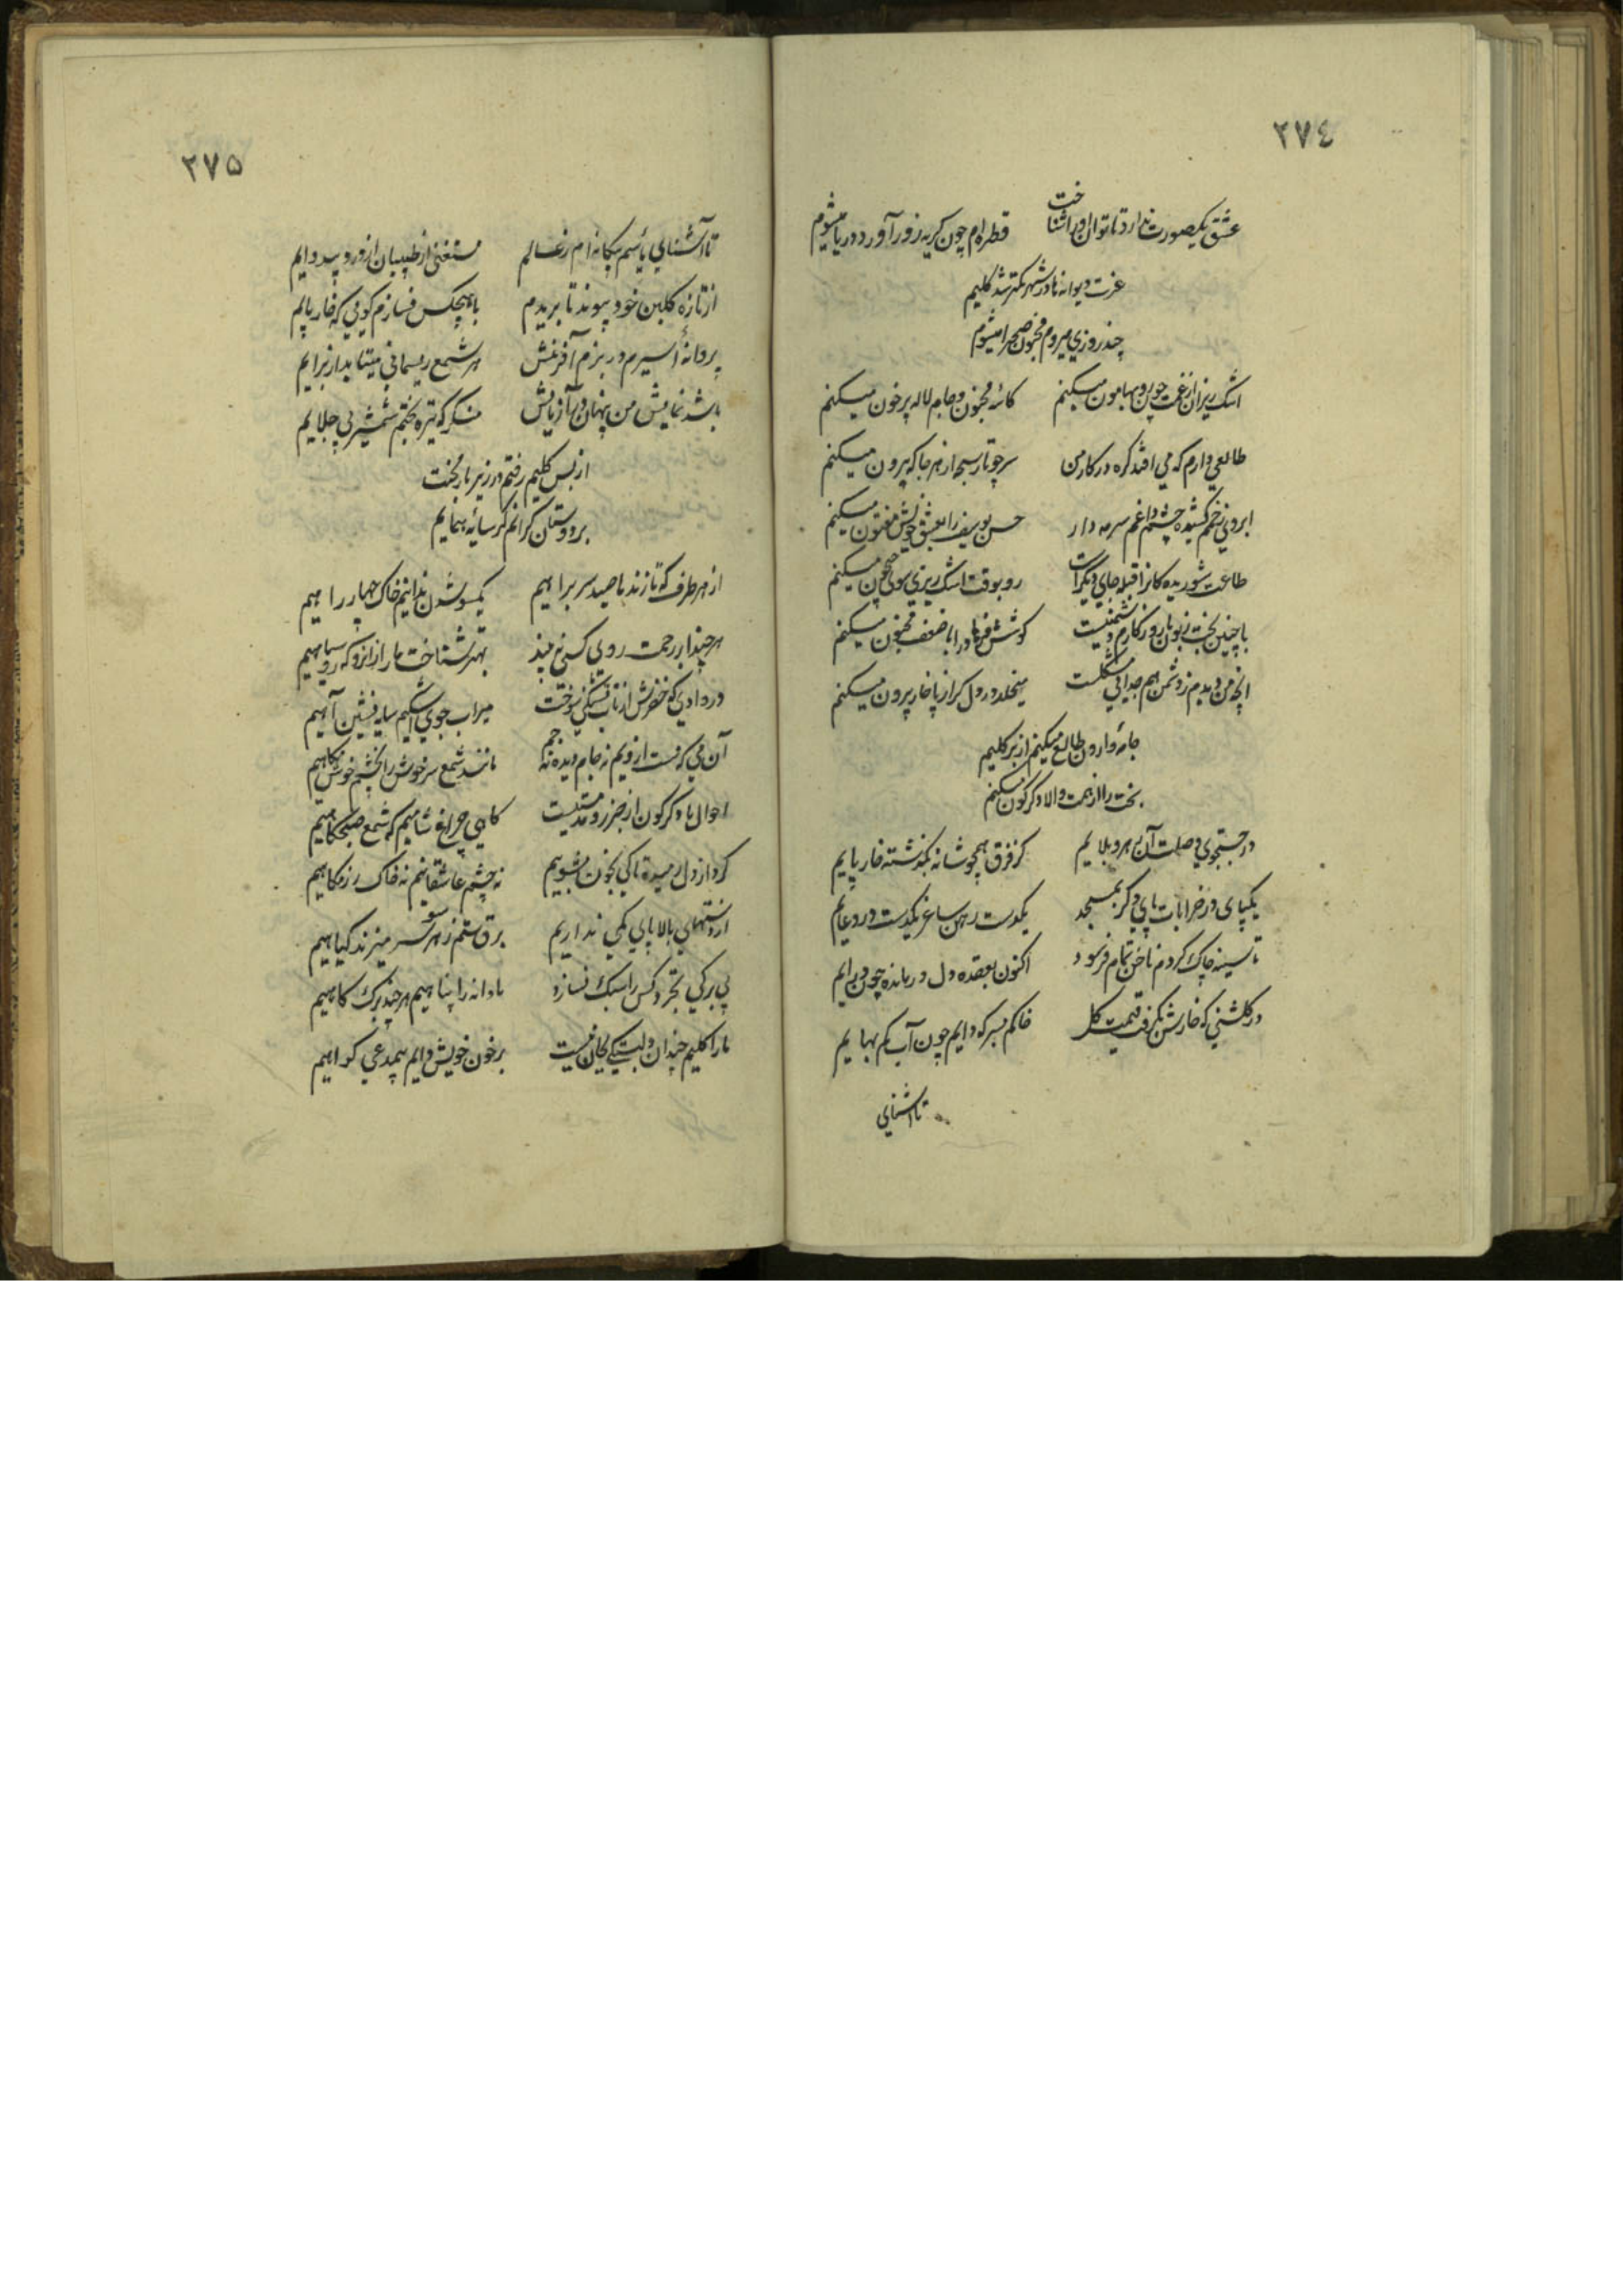 ٢٧٤
عشق یکصورت ندارد تا توان او را شناخت قطره‌ام چون گریه زور آورد دریا میشوم
عزت دیوانه‌ها در شهر کمتر شد کلیم
چند روزی میروم مجنون صحرا میشوم
اشک ریزان از غمت چون رو بهامون میکنم کاسهٔ مجنون و جام لاله پر خون میکنم
طالعی دارم که می افتد گره در کار من سر چو تار سبحه از هر جا که بیرون میکنم
ابروی زخم کشیده چشم داغم سرمه دار حسن یوسف را بعشق خویش مفتون میکنم
طاعت شوریده کانرا قبله جای دیگر است رو بوقت اشک ریزی سوی جیحون میکنم
با چنین بخت زبون با روزگارم دشمنیست کوشش فرهاد را با ضعف مجنون میکنم
انچه من دیدم ز دشمن هم جدایی مشکلست میخلد در دل گر از پا خار بیرون میکنم
جامهٔ وارون طالع میکنم از بر کلیم
بخت را از همت والا دگرگون میکنم
در جستجوی وصلت آن رهرو بلایم کز فرق همچو شانه بگذشته خار پایم
یکپای در خرابات پای دگر بمسجد یکدست رهن ساغر یکدست در دعایم
تا سینه چاک کردم ناخن تمام فرسود اکنون بعقده دل درمانده چون برایم
در گلشنی که خارش نگرفت قیمت گل خاکم بسر که دایم چون آب کم بهایم
تا اشنای
٢٧٥
تا آشنای یأسم بیگانه‌ام ز عالم مستغنی از طبیبان از درد بیدوایم
از تازه گلبن خود پیوند تا بریدم با هیچکس نسازم گویی که خار پایم
پروانهٔ اسیرم در بزم آفرینش هر شمع ریسمانی میتابد از برایم
باشد نمایش من پنهان در آزمایش منگر که تیره بختم شمشیر بی جلایم
از بس کلیم رفتم در زیر بار بخت
بر دوستان گرانم گر سایهٔ همایم
از هر طرف که تازند ما صید سر براهیم یکسو شدن ندانیم خاک چهار راهیم
هر چند ابر رحمت روی کسی نبیند بهتر شناخت ما را زانرو که روسیاهیم
در وادیی که خضرش از تاب تشنگی سوخت میراب جوی اشکیم سایه نشین آهیم
آن می که مست ازویم نه جام دیده نه جم مانند شمع سرخوش از چشم خوش نگاهیم
احوال ما دگرگون از جزر و مد مستیست گاهی چراغ شامیم گه شمع صبحگاهیم
گرد از دل رمیده تا کی بخون بشوییم نه چشم عاشقانیم نه خاک رزمگاهیم
از منتهای بالا پای کمی نداریم برق ستم ز هر سو سر میزند گیاهیم
بی برگی تجرد کس را سبک نسازد ما دانه را پناهیم هر چند برگ کاهیم
ما را کلیم چندان دلبستگی بجان نیست بر خون خویش دایم بیمدعی گواهیم